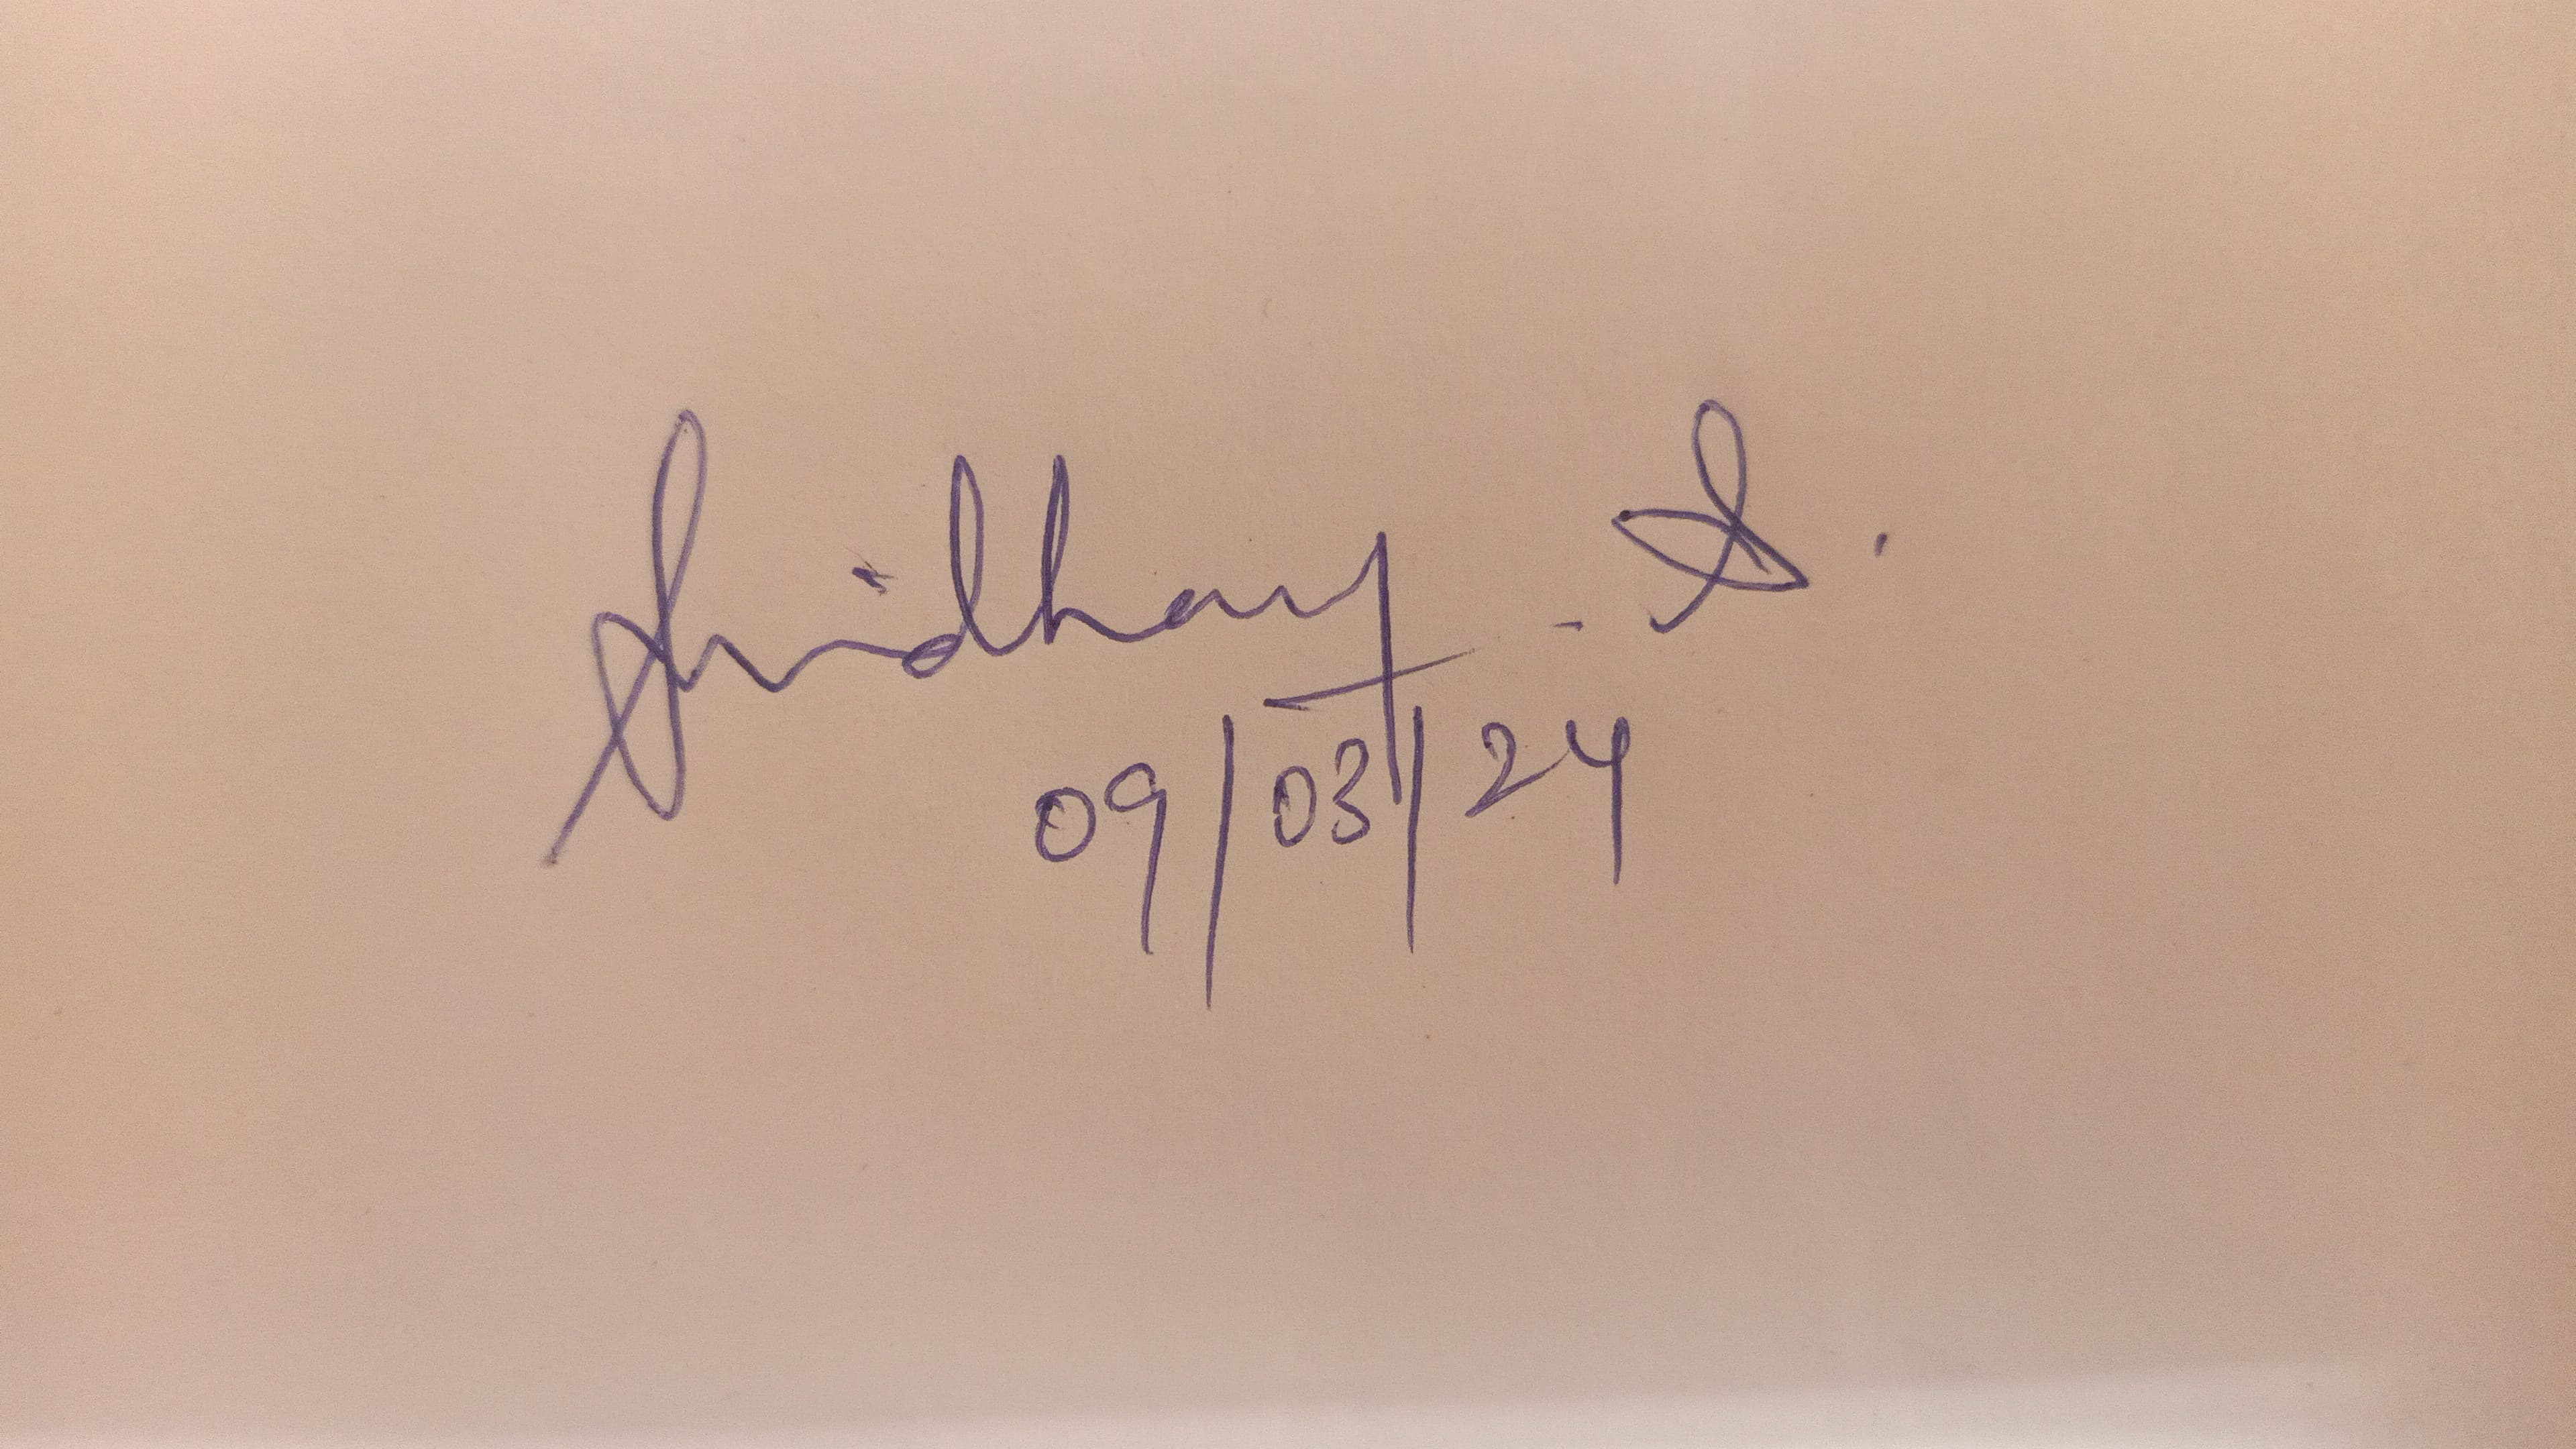 Sridhar. S.
09/03/24